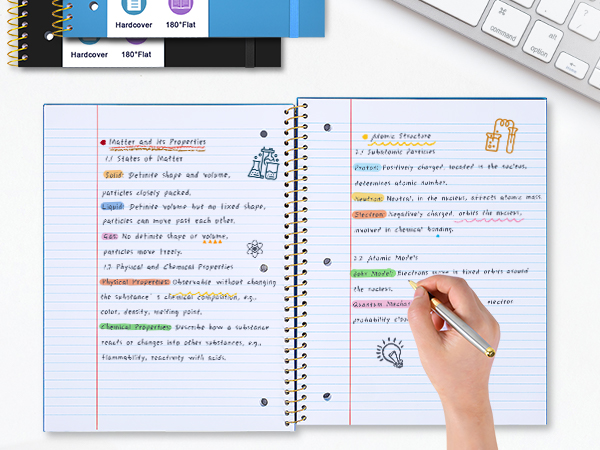 Hardcover 180°Flat
Hardcover 180°Flat
command
alt
option
Matter and its Properties
1.1 States of Matter
Solid: Definite shape and volume,
particles closely packed.
Liquid: Definite volume but no fixed shape,
particles can move past each other.
Gas: No definite shape or volume,
particles move freely.
1.2 Physical and Chemical Properties
Physical Properties: Observable without changing
the substance's chemical composition, e.g.,
color, density, melting point.
Chemical Properties: Describe how a substance
reacts or changes into other substances, e.g.,
flammability, reactivity with acids.
Atomic Structure
2.1 Subatomic Particles
Proton: Positively charged, located in the nucleus,
determines atomic number.
Neutron: Neutral, in the nucleus, affects atomic mass.
Electron: Negatively charged, orbits the nucleus,
involved in chemical bonding.
2.2 Atomic Models
Bohr Model: Electrons move in fixed orbits around
the nucleus.
Quantum
probability